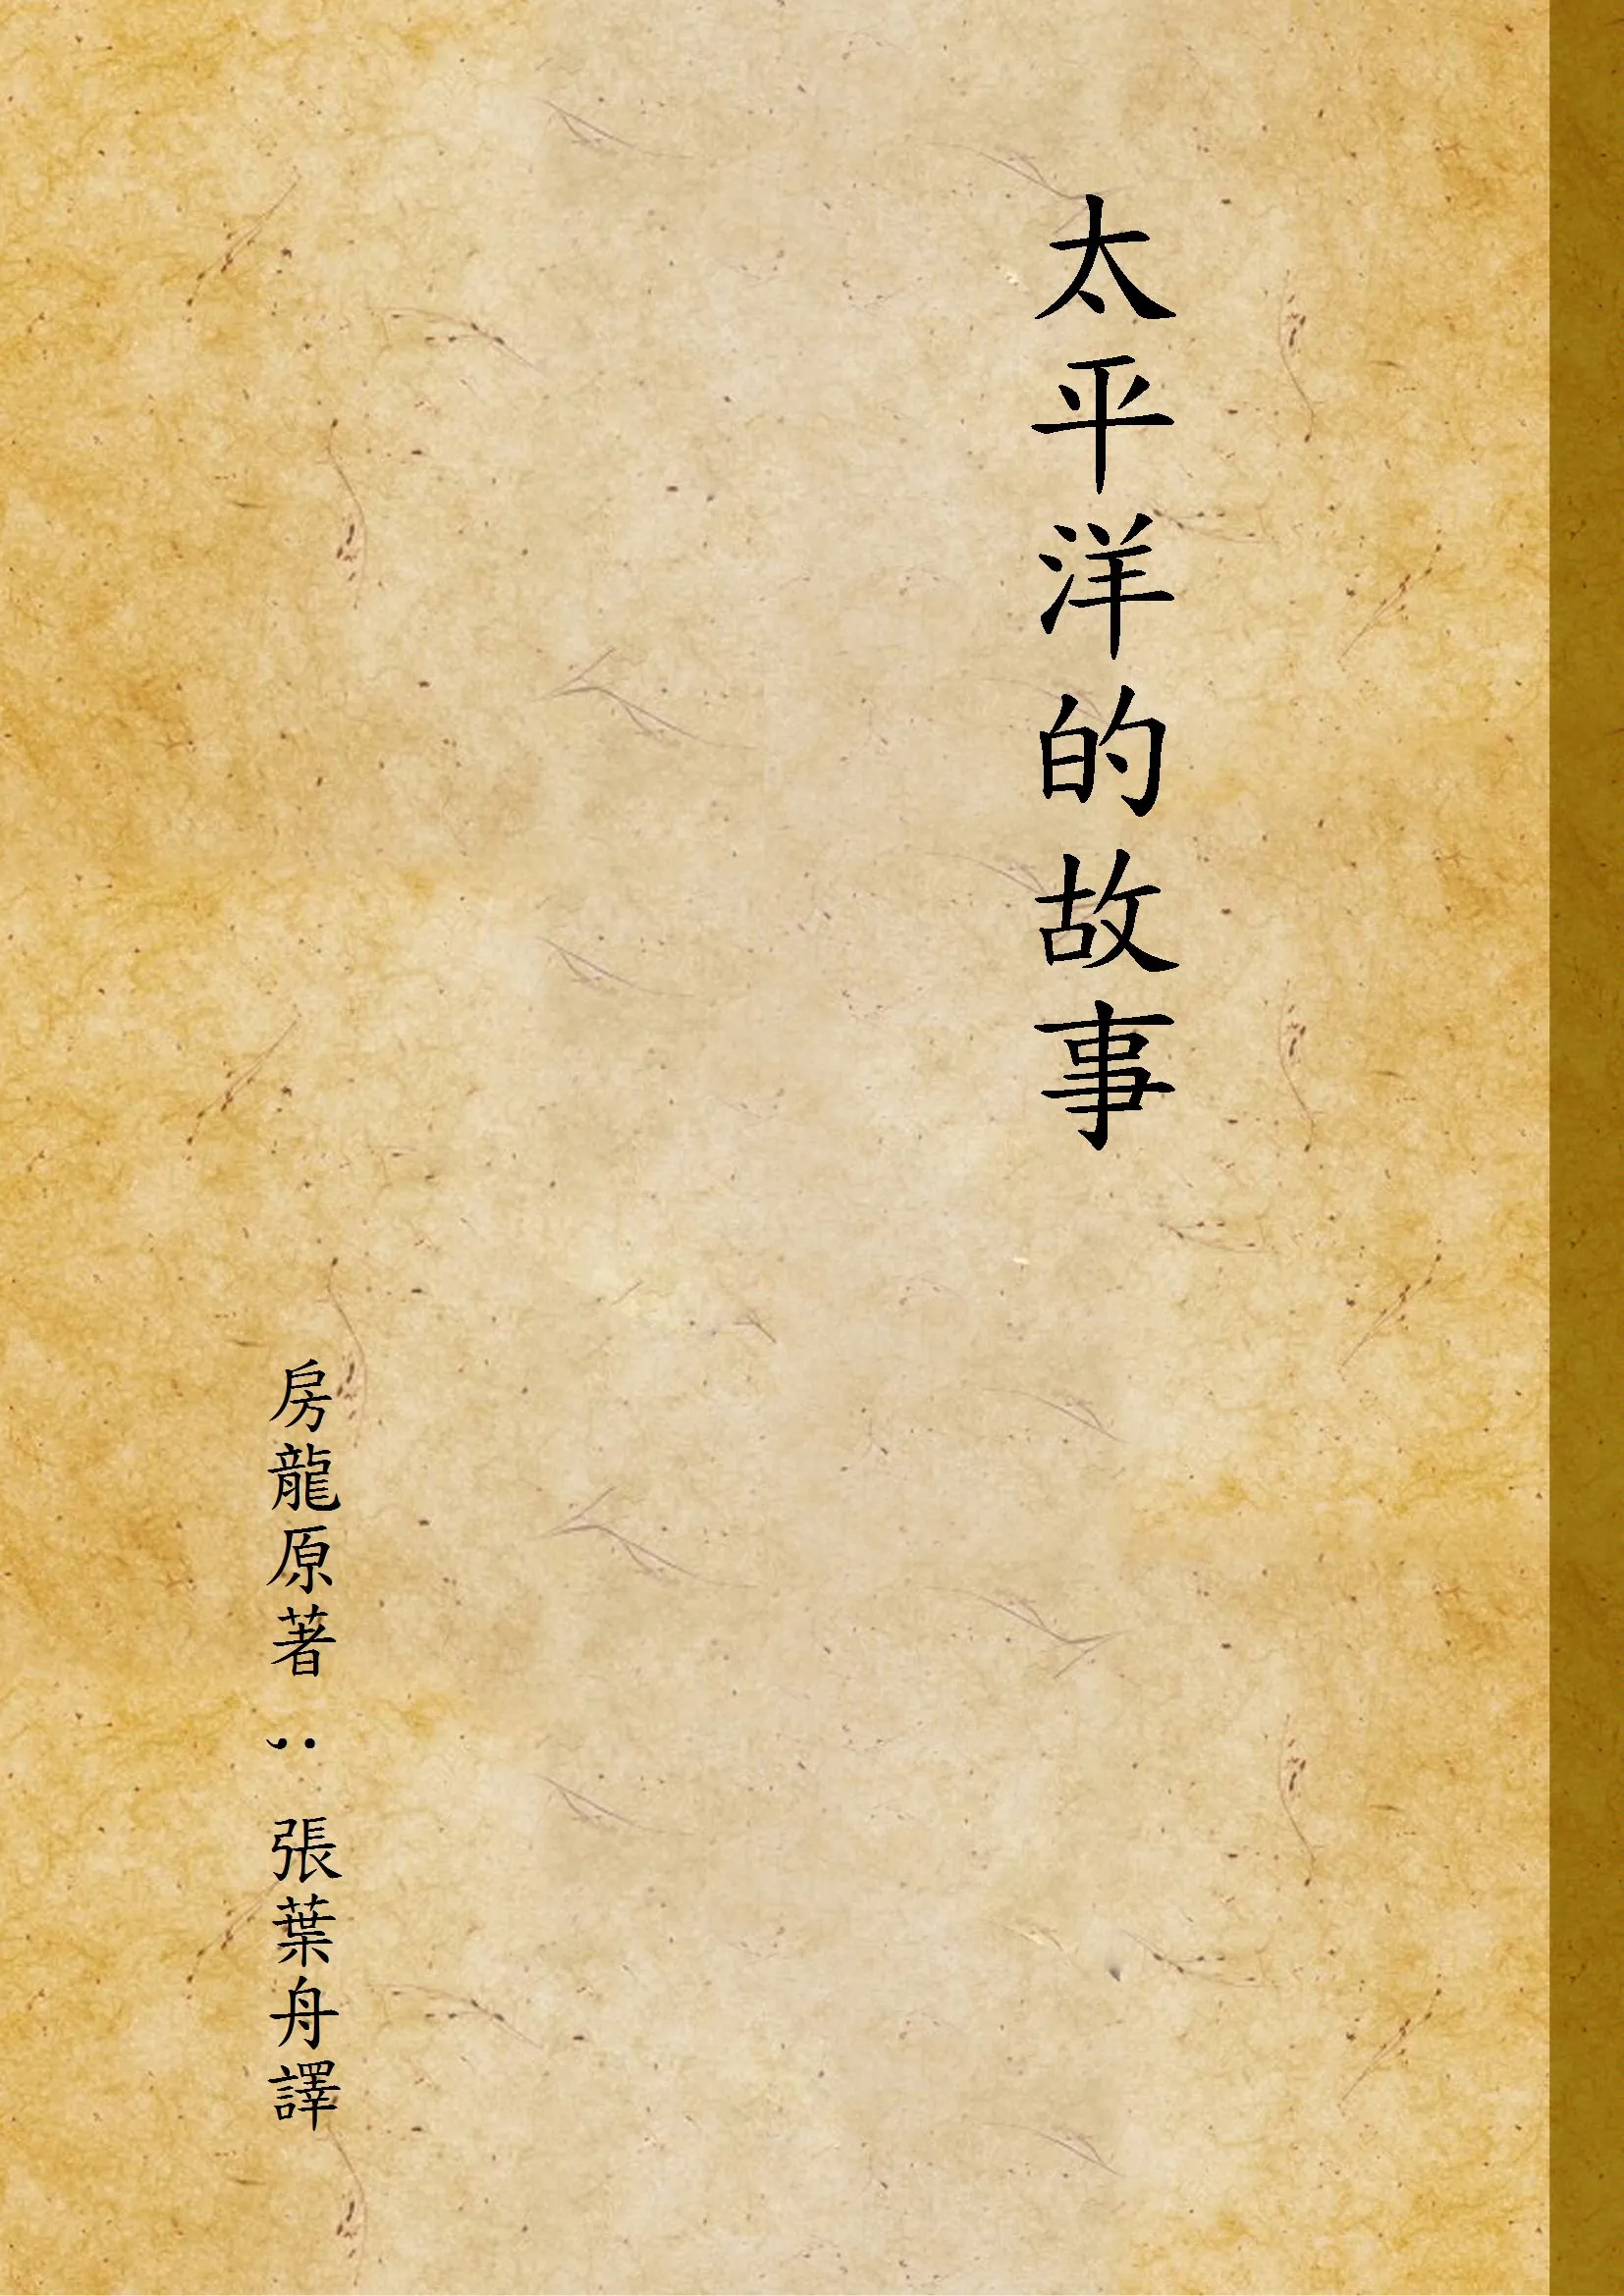 太平洋的故事
房龍原著; 張葉舟譯